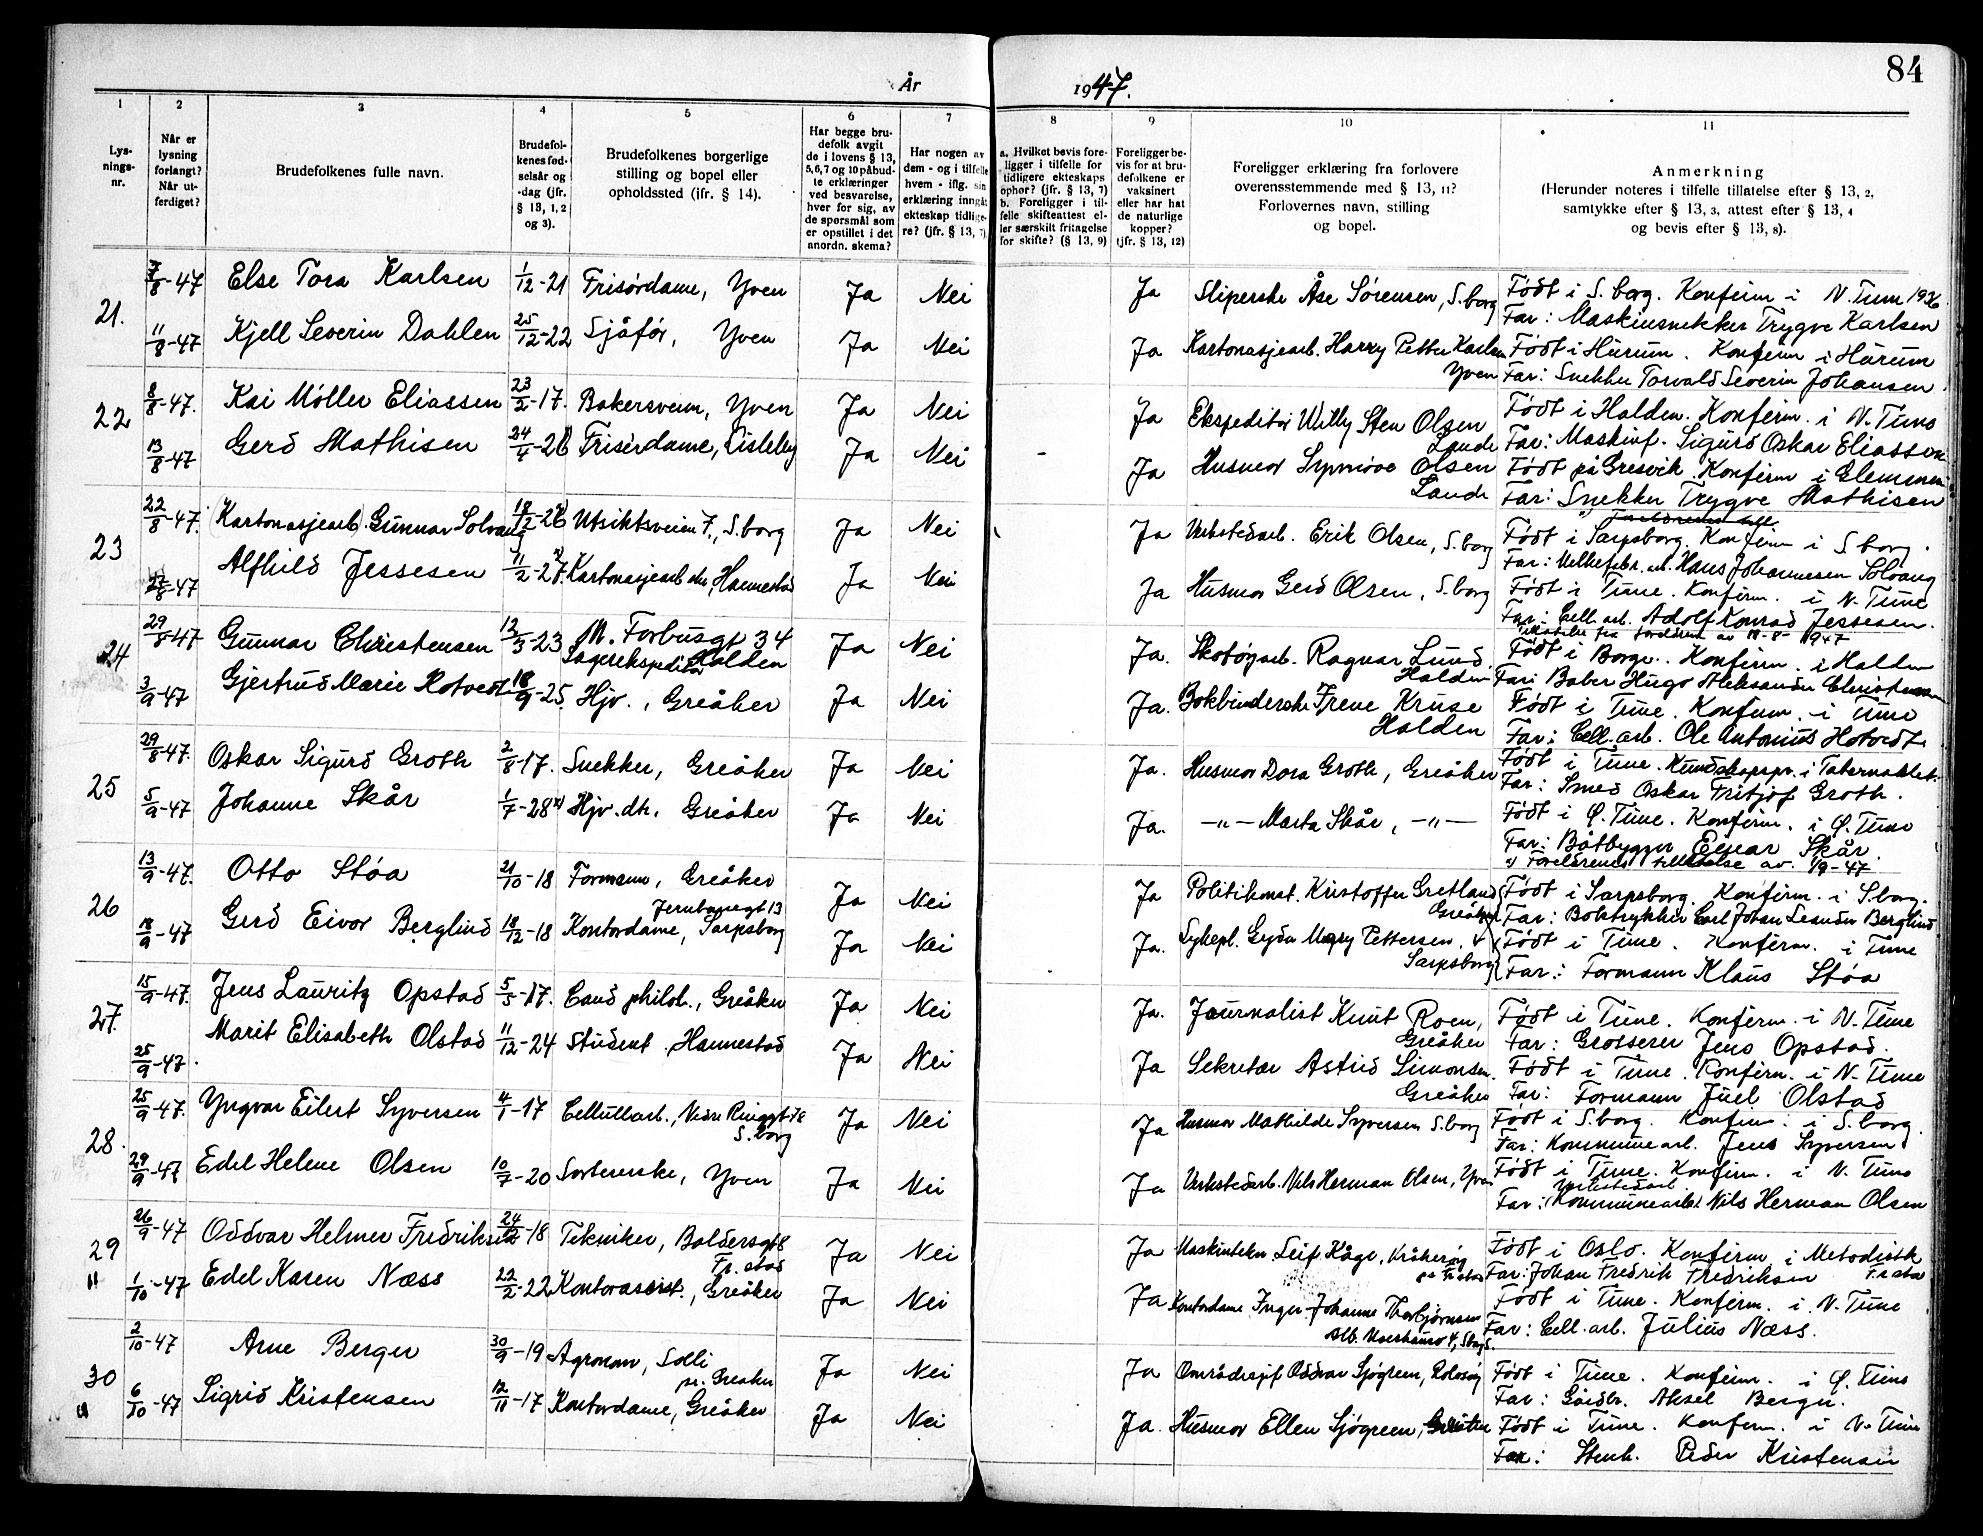 84
År 1947.
1 2 3 4 5 6 7 8 9 10 11
Lysningsnr.
Når er lysning forlangt? Når utferdiget?
Brudefolkenes fulle navn.
Brudefolkenes fødselsår og -dag (jfr. § 13, 1, 2 og 3).
Brudefolkenes borgerlige stilling og bopel eller opholdssted (ifr. § 14).
Har begge brudefolk avgit de i lovens § 13, 5, 6, 7 og 10 påbudte erklæringer ved besvarelse, hver for sig, av de spørsmål som er opstillet i det anordn. skema?
Har nogen av dem - og i tilfelle hvem - iflg. sin erklæring inngåt ekteskap tidligere? (jfr. § 13, 7)
a. Hvilket bevis foreligger i tilfelle for tidligere ekteskaps ophør? (jfr. § 13, 7) b. Foreligger i tilfelle skifteattest eller særskilt fritagelse for skifte? (§ 13, 9)
Foreligger bevis for at brudefolkene er vaksinert eller har hat de naturlige kopper? (jfr. § 13, 12)
Foreligger erklæring fra forlovere overensstemmende med § 13, 11? Forlovernes navn, stilling og bopel.
Anmerkning (Herunder noteres i tilfelle tillatelse efter § 13, 2, samtykke efter § 13, 3, attest efter § 13, 4 og bevis efter § 13, 8).
21. 7/8-47 Else Tora Karlsen 1/12-21 Frisørdame, Yven Ja Nei Ja Sliperske Åse Sørensen, S.borg Født i S.borg. Konfirm i N. Tune 1936
Far: Maskinsnekker Trygve Karlsen
11/8-47 Kjell Severin Dahlen 25/12-22 Sjåfør, Yven Ja Nei Ja Kartonasjearb. Harry Petter Karlsen Yven Født i Hurum. Konfirm i Hurum
Far: Snekker Torvald Severin Johansen
22 8/8-47. Kai Møller Eliassen 23/2-17. Bakersvenn, Yven Ja Nei Ja Ekspeditør Willy Sten Olsen Lande Født i Halden. Konfirm. i N. Tune
Far: Maskinf. Sigurd Oskar Eliassen
13/8-47 Gerd Mathisen 24/4-26 Frisérdame, Lisleby Ja Nei - Ja Husmor Synnøve Olsen Lande Født på Gresvik. Konfirm i Glemmen
Far: Snekker Trygve Mathisen
23 22/8-47. (Kartonasjearb) Gunnar Solvang 18/2-26 Utsiktsveien 7., S.borg Ja Nei Ja Verkstedarb. Erik Olsen, S.borg Født i Sarpsborg. Konfirm i S.borg.
Far: Hans Johannesen Solvang
27/8-47 Alfhild Jessesen 11/2-27. Kartonasjearb.ske, Hannestad Ja Nei Ja Husmor Gerd Olsen, S.borg Født i Tune. Konfirm. i N. Tune
Far: Cell.arb. Adolf Konrad Jessesen.
Tillatelse fra foreldrene av 18-8-1947
24 29/8-47 Gunnar Christensen 12/3-23 M. Forbusgt 34 Lagerekspeditør Halden Ja Nei Ja. Skotøyarb. Ragnar Lund, Halden Født i Borge. Konfirm. i Halden
Far: Baker Hugo Aleksander Christensen
3/9-47 Gjertrud Marie Hotvedt 18/9-25. Hjv., Greåker Ja Nei Ja. Bokbinderske Irene Kruse Halden Født i Tune. Konfirm. i Tune
Far: Cell.arb. Ole Antonius Hotvedt.
25 29/8-47. Oskar Sigurd Groth 2/8-17. Snekker, Greåker Ja Nei Ja. Husmor Dora Groth, Greåker Født i Tune. Kundskapspr. i Tabernaklet.
Far: Smed Oskar Fritjof Groth.
5/9-47 Johanne Skår 1/7-28 x) Hjv. dtr., Greåker Ja Nei Ja. -"- Marta Skår, -"- Født i Ø. Tune. Konfirm. i Ø. Tune
Far: Båtbygger Einar Skår.
x) Foreldrenes tillatelse av 1/9-47
26 13/9-47. Otto Støa 21/10-18 Formann, Greåker Ja Nei Ja Politikonst. Kristoffer Gretland Greåker Født i Sarpsborg. Konfirm. i S.borg.
Far: Boktrykker Carl Johan Leander Berglind
18/9-47 Gerd Eivor Berglind 18/12-18 Kontordame, Jernbanegt 13 Sarpsborg Ja Nei Ja. Sykepl. Gyda Mary Pettersen. Sarpsborg Født i Tune. Konfirm. i Tune
Far: Formann Klaus Støa
27. 15/9-47. Jens Lauritz Opstad 5/5-17. Cand philol., Greåker Ja Nei Ja. Journalist Knut Roen, Greåker Født i Tune. Konfirm. i N. Tune
Far: Grosserer Jens Opstad.
25/9-47. Marit Elisabeth Olstad 11/12-24 Student. Hannestad Ja Nei Ja Sekretær Astrid Simonsen. Greåker Født i Tune. Konfirm. i N. Tune
Far: Formann Juel Olstad
28. 25/9-47. Yngvar Eilert Syversen 4/1-17 Cellullarb., Nedre Ringgt 78 S.borg Ja Nei Ja Husmor Mathilde Syversen S.borg Født i S.borg. Konfirm. i S.borg.
Far: Kommunearb. Jens Syversen
29/9-47 Edel Helene Olsen 10/7-20 Sortererske, Yven Ja Nei Ja Verkstedarb. Nils Herman Olsen, Yven Født i Tune. Konfirm. i N. Tune
Far: (Kommunearb.) Verkstedarb Nils Herman Olsen
29 26/9-47 Oddvar Helmer Fredriksen 24/12-18 Tekniker, Baldersgt 8 Fr.stad Ja Nei Ja Maskintekn. Leif Kåge, Kråkerøy pr. Fr.stad Født i Oslo. Konfirm. i Metodistk Fr.stad
Far: Johan Fredrik Fredriksen
" 1/10-47 Edel Karen Næss 22/2-22 Kontorassist., Greåker Ja Nei Ja Kontordame Inger Johanne Thorbjørnsen Født i Tune. Konfirm. i N. Tune
Far: Cell.arb. Julius Næss.
30 2/10-47 Arne Berger 30/9-19 Agronom, Solli pr. Greåker Ja Nei Ja Områdesjef Oddvar Sjøgreen, Rolvsøy Født i Tune. Konfirm. i Ø. Tune
Far: Gårdbr. Aksel Berger.
" 6/10-47 Sigrid Kristensen 12/11-17 Kontordame, Greåker Ja Nei Ja. Husmor Ellen Sjøgreen, Født i Tune. Konfirm. i N. Tune
Far: Stenh. Peder Kristensen